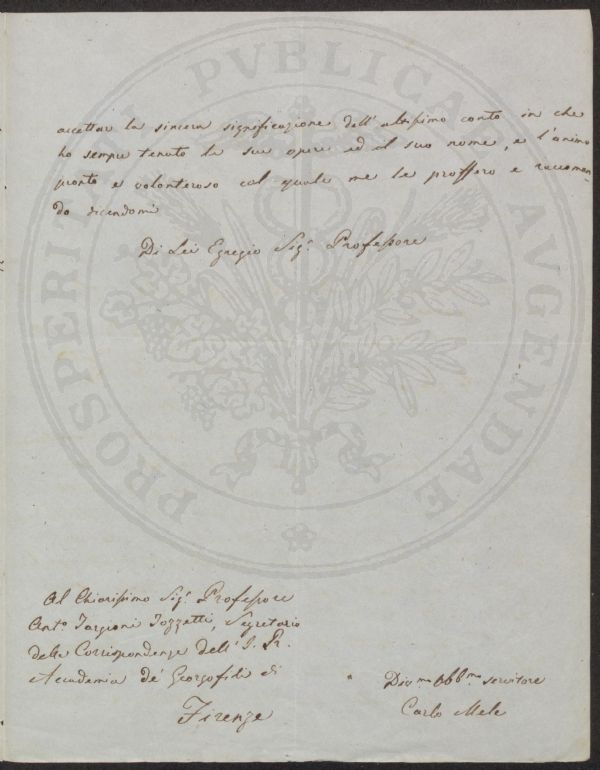 accettar la sincera significazione dell'altissimo conto in che
ho sempre tenuto le sue opere ed il suo nome, e l'animo
pronto e volonteroso col quale me le proffero e raccoman-
do dicendomi
Di Lei Egregio Sig.r Professore
Al Chiarissimo Sig.r Professore
Ant.o Targioni Tozzetti, Segretario
delle Corrispondenze dell'I. R.
Accademia de' Georgofili di
Firenze
Div.mo Obb.mo servitore
Carlo Mele
PROSPERITATI PVBLICAE AVGENDAE